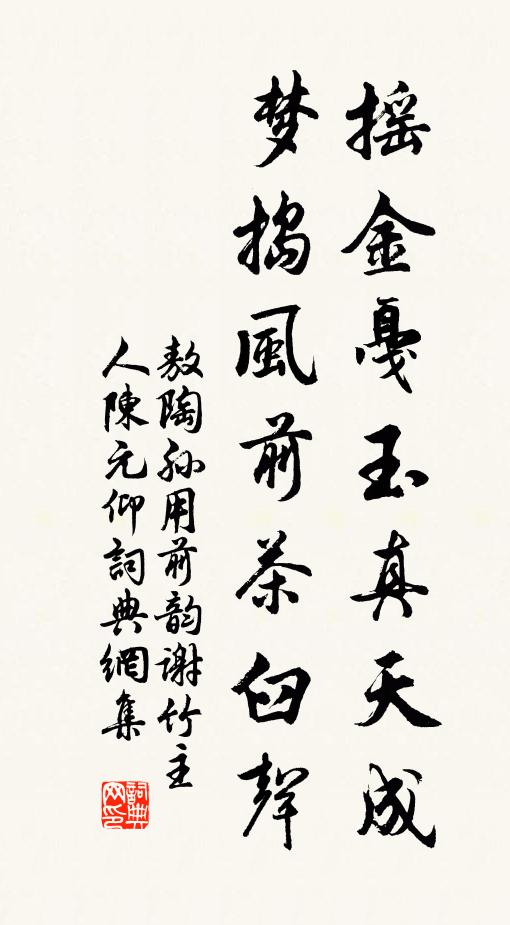 摇金戛玉真天成
梦捣風前茶臼聲
敖陶孙用前韵谢竹主
人陳元仰詞典網集
詞典网印